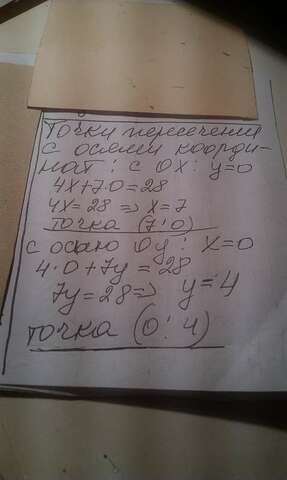 Точки пересечения
с осями коорди-
нат: с OX: y=0
4x+7·0=28
4x=28 => x=7
точка (7;0)
с осью Oy: x=0
4·0+7y=28
7y=28=> y=4
точка (0; 4)